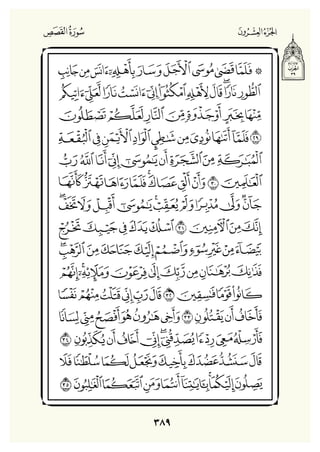 الجُزْءُ العِشْرُونَ سُورَةُ القَصَصِ
۞ فَلَمَّا قَضَىٰ مُوسَى ٱلْأَجَلَ وَسَارَ بِأَهْلِهِۦٓ ءَانَسَ مِن جَانِبِ
ٱلطُّورِ نَارًا قَالَ لِأَهْلِهِ ٱمْكُثُوٓا۟ إِنِّىٓ ءَانَسْتُ نَارًا لَّعَلِّىٓ ءَاتِيكُم
مِّنْهَا بِخَبَرٍ أَوْ جَذْوَةٍ مِّنَ ٱلنَّارِ لَعَلَّكُمْ تَصْطَلُونَ
٢٩ فَلَمَّآ أَتَىٰهَا نُودِىَ مِن شَٰطِئِ ٱلْوَادِ ٱلْأَيْمَنِ فِى ٱلْبُقْعَةِ
ٱلْمُبَٰرَكَةِ مِنَ ٱلشَّجَرَةِ أَن يَٰمُوسَىٰٓ إِنِّىٓ أَنَا ٱللَّهُ رَبُّ
ٱلْعَٰلَمِينَ ٣٠ وَأَنْ أَلْقِ عَصَاكَ فَلَمَّا رَءَاهَا تَهْتَزُّ كَأَنَّهَا
جَآنٌّ وَلَّىٰ مُدْبِرًا وَلَمْ يُعَقِّبْ يَٰمُوسَىٰٓ أَقْبِلْ وَلَا تَخَفْ
إِنَّكَ مِنَ ٱلْءَامِنِينَ ٣١ ٱسْلُكْ يَدَكَ فِى جَيْبِكَ تَخْرُجْ
بَيْضَآءَ مِنْ غَيْرِ سُوٓءٍ وَٱضْمُمْ إِلَيْكَ جَنَاحَكَ مِنَ ٱلرَّهْبِ
فَذَٰنِكَ بُرْهَٰنَانِ مِن رَّبِّكَ إِلَىٰ فِرْعَوْنَ وَمَلَإِي۟هِۦٓ إِنَّهُمْ
كَانُوا۟ قَوْمًا فَٰسِقِينَ ٣٢ قَالَ رَبِّ إِنِّى قَتَلْتُ مِنْهُمْ نَفْسًا
فَأَخَافُ أَن يَقْتُلُونِ ٣٣ وَأَخِى هَٰرُونُ هُوَ أَفْصَحُ مِنِّى لِسَانًا
فَأَرْسِلْهُ مَعِىَ رِدْءًا يُصَدِّقُنِىٓ إِنِّىٓ أَخَافُ أَن يُكَذِّبُونِ ٣٤
قَالَ سَنَشُدُّ عَضُدَكَ بِأَخِيكَ وَنَجْعَلُ لَكُمَا سُلْطَٰنًا فَلَا
يَصِلُونَ إِلَيْكُمَا بِـَٔايَٰتِنَآ أَنتُمَا وَمَنِ ٱتَّبَعَكُمَا ٱلْغَٰلِبُونَ ٣٥
٣٨٩